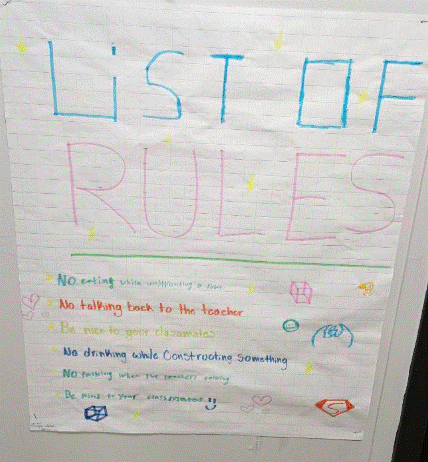 LiST OF
RULES
No eating while
No talking back to the teacher
Be nice to your classmates
No drinking while Constructing Something
No talking when the teachers talking
Be nice to your classmates
S